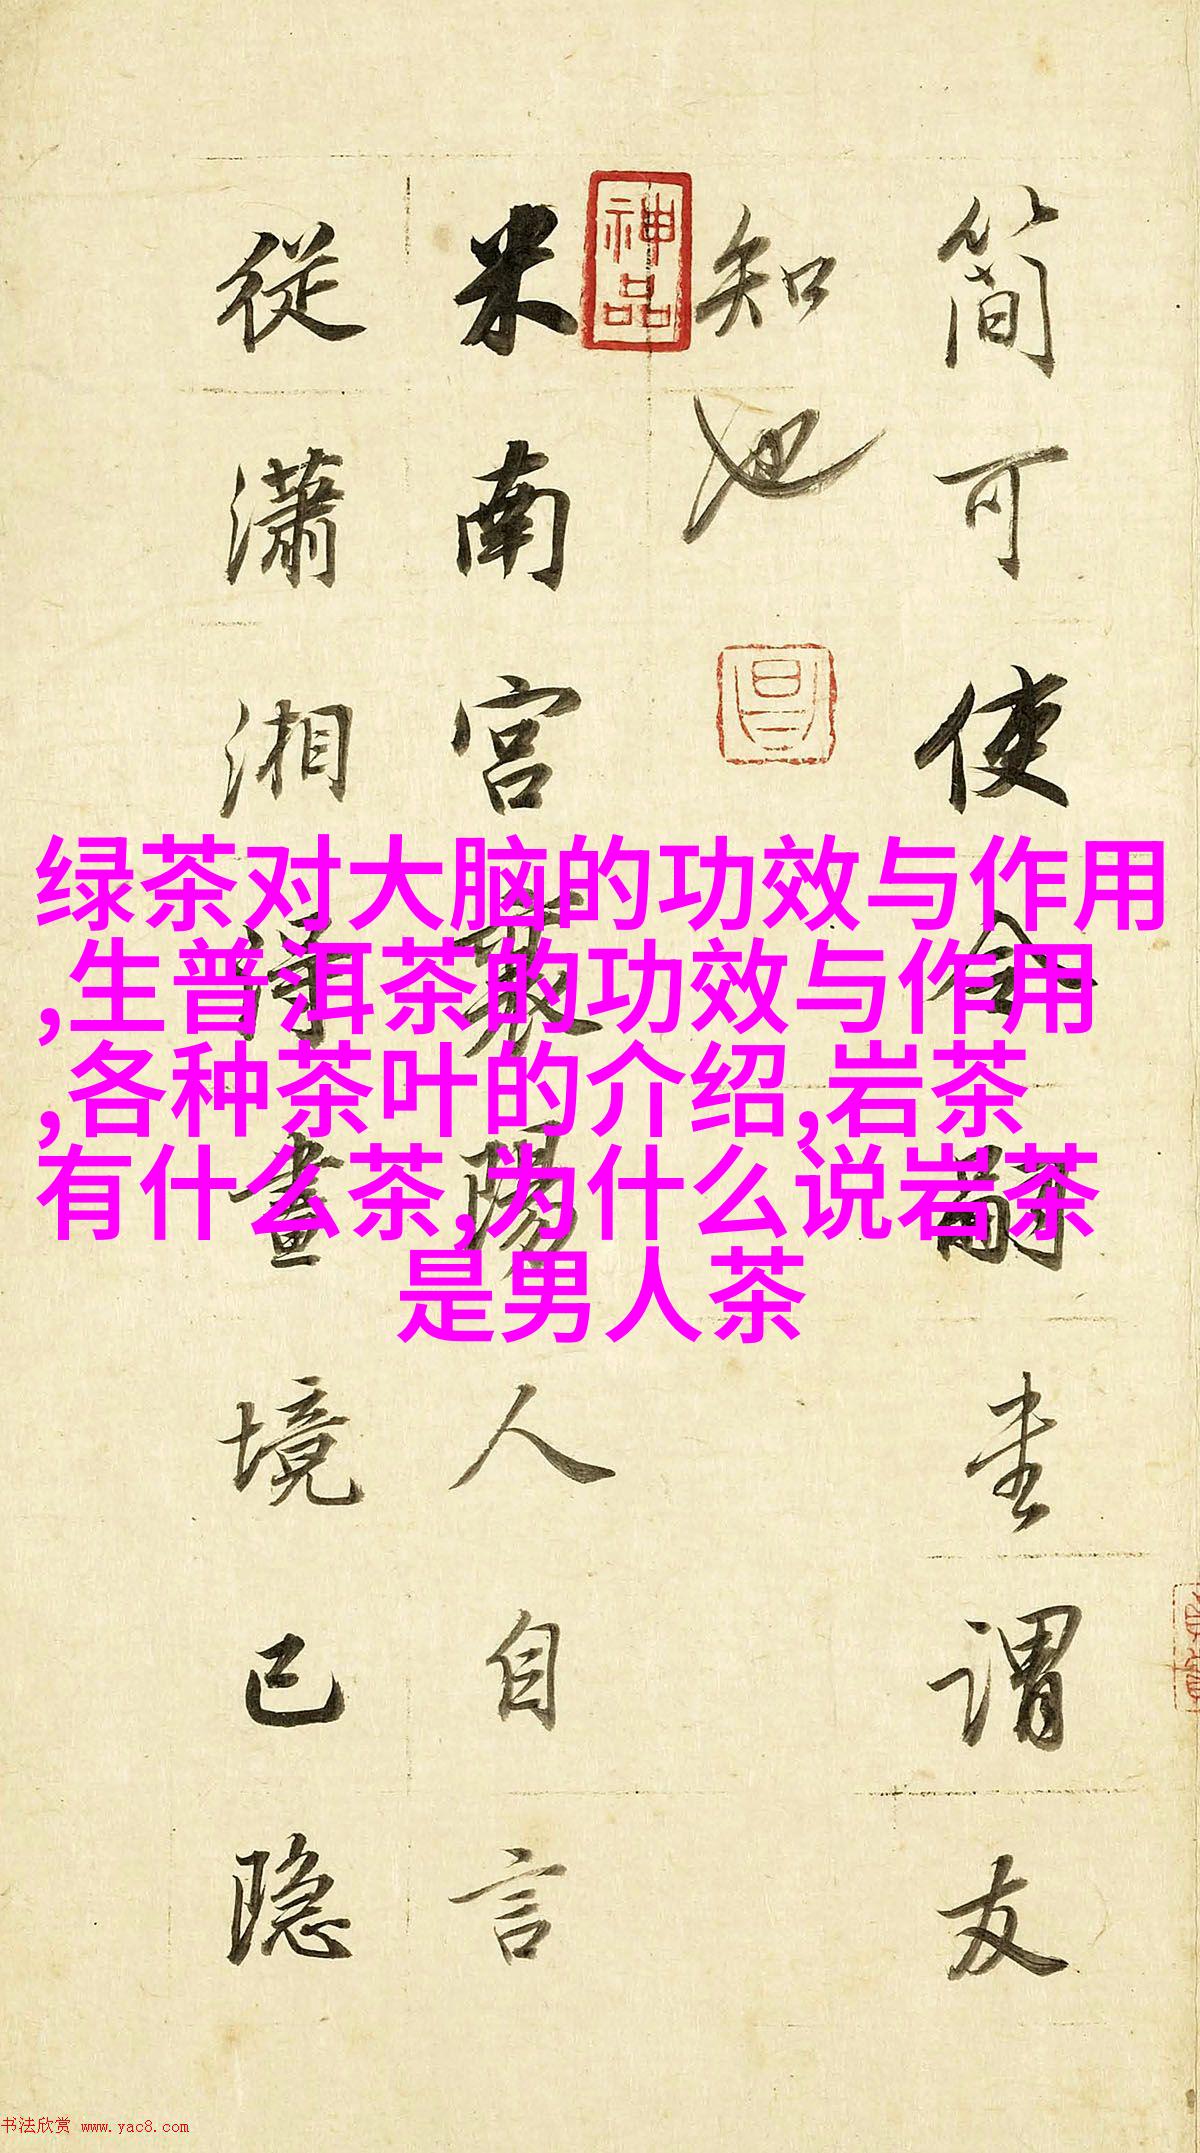 简可使令嗣书谓友
知也
米南宫襄阳人自言
從瀟湘得畫境已隐
神品
昌
绿茶对大脑的功效与作用
,生普洱茶的功效与作用
,各种茶叶的介绍,岩茶
有什么茶,为什么说岩茶
是男人茶
书法欣赏 www.yac8.com